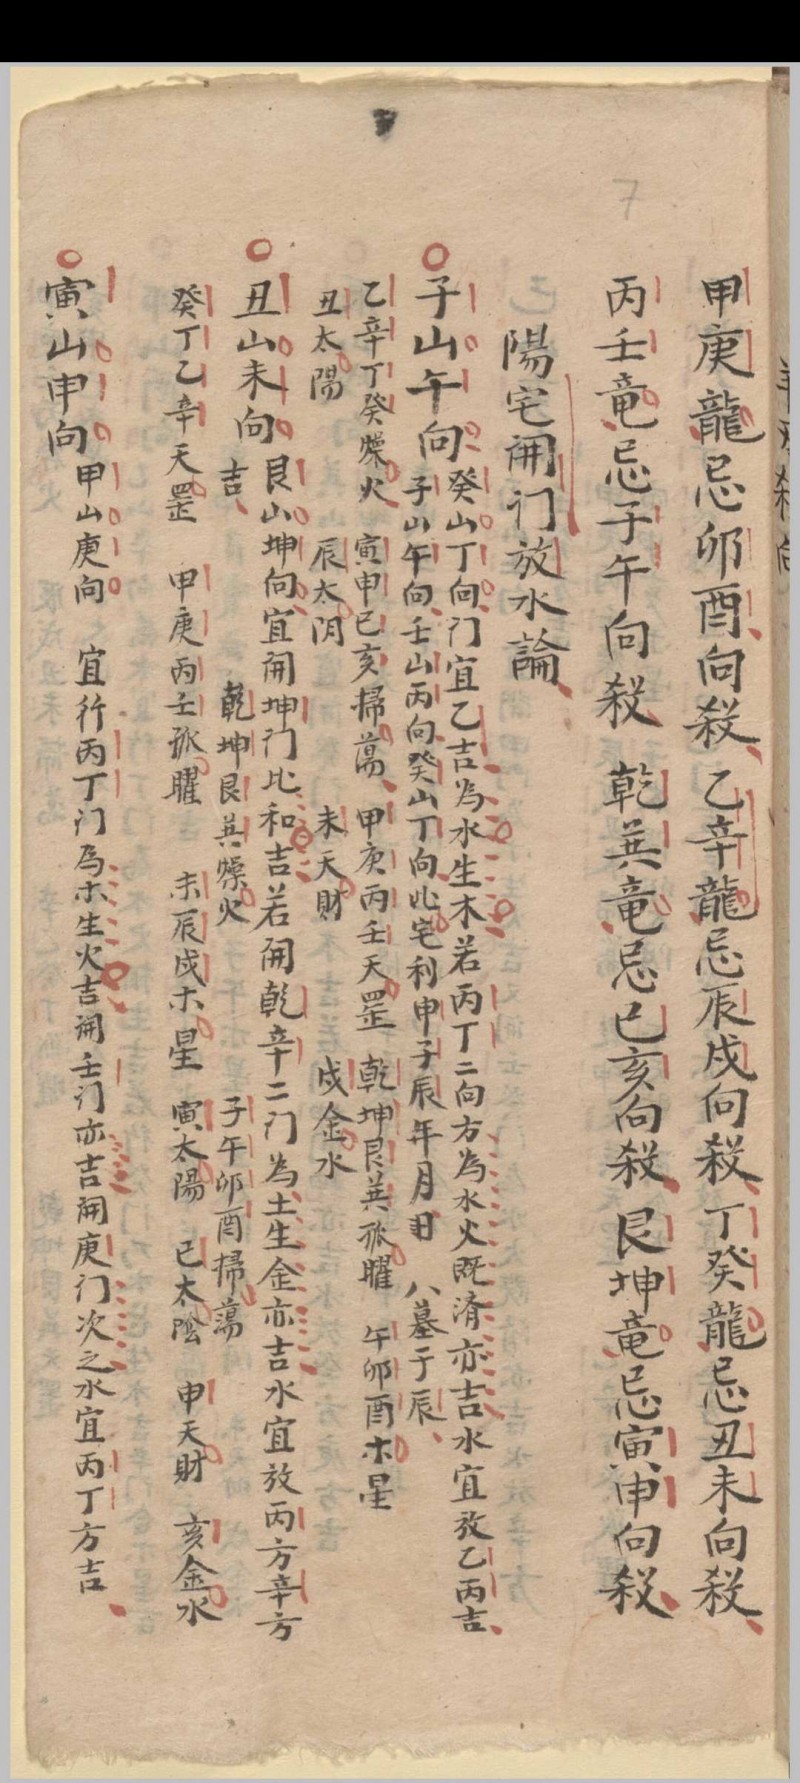 甲庚龍忌卯酉向殺乙辛龍忌辰戌向殺丁癸龍忌丑未向殺
丙壬竜忌子午向殺 乾巽竜忌巳亥向殺 艮坤竜忌寅申向殺
陽宅開门放水論
子山午向
癸山丁向门宜乙吉為水生木若丙丁二向方為水火既濟亦吉水宜放乙丙吉
子山午向壬山丙向癸山丁向此宅利申子辰年月日 八墓于辰
乙辛丁癸燥火 寅申巳亥掃蕩 甲庚丙壬天罡 乾坤艮巽孤曜 午卯酉木星
丑太陽 辰太阴 未天財 戌金水
丑山未向
艮山坤向宜開坤门比和吉若開乾辛二门為土生金亦吉水宜放丙方辛方
吉 乾坤艮巽燥火 子午卯酉掃蕩
癸丁乙辛天罡 甲庚丙壬孤曜 未辰戌木星 寅太陽 巳太陰 申天財 亥金水
寅山申向
甲山庚向 宜行丙丁门為木生火吉開壬门亦吉開庚门次之水宜丙丁方吉
7